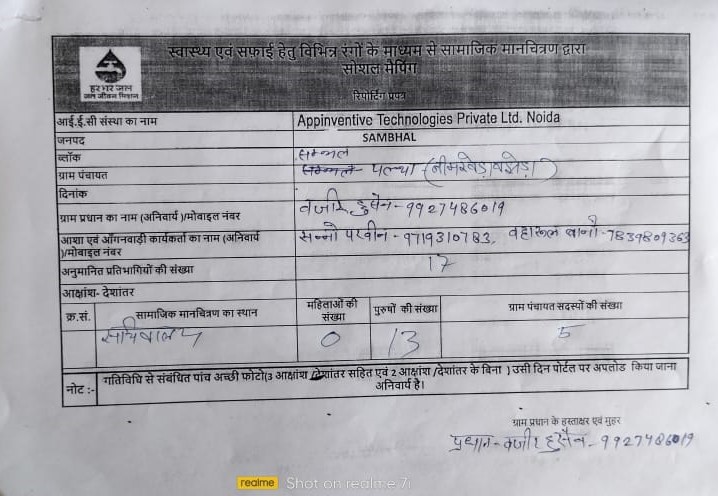 स्वास्थ्य एवं सफाई हेतु विभिन्न रंगों के माध्यम से सामाजिक मानचित्रण द्वारा
सोशल मैपिंग
रिपोर्टिंग प्रपत्र
हर घर जल
जल जीवन मिशन
आई.ई.सी संस्था का नाम Appinventive Technologies Private Ltd. Noida
जनपद SAMBHAL
ब्लॉक सम्भल
ग्राम पंचायत सम्भल- पल्था
दिनांक
ग्राम प्रधान का नाम (अनिवार्य )/मोबाइल नंबर वजीर हुसैन-9927486019
आशा एवं आँगनवाड़ी कार्यकर्ता का नाम (अनिवार्य )/मोबाइल नंबर सन्नो परवीन - 9719310783, बानो-7839809363
अनुमानित प्रतिभागियों की संख्या 17
आक्षांश- देशांतर
क्र.सं. सामाजिक मानचित्रण का स्थान महिलाओं की संख्या पुरुषों की संख्या ग्राम पंचायत सदस्यों की संख्या
सचिवालय 0 13 5
नोट :- गतिविधि से संबंधित पांच अच्छी फोटो(3 आक्षांश /देशांतर सहित एवं 2 आक्षांश /देशांतर के बिना ) उसी दिन पोर्टल पर अपलोड किया जाना
अनिवार्य है।
ग्राम प्रधान के हस्ताक्षर एवं मुहर
प्रधान- वजीर हुसैन - 9927486019
realme Shot on realme 7i